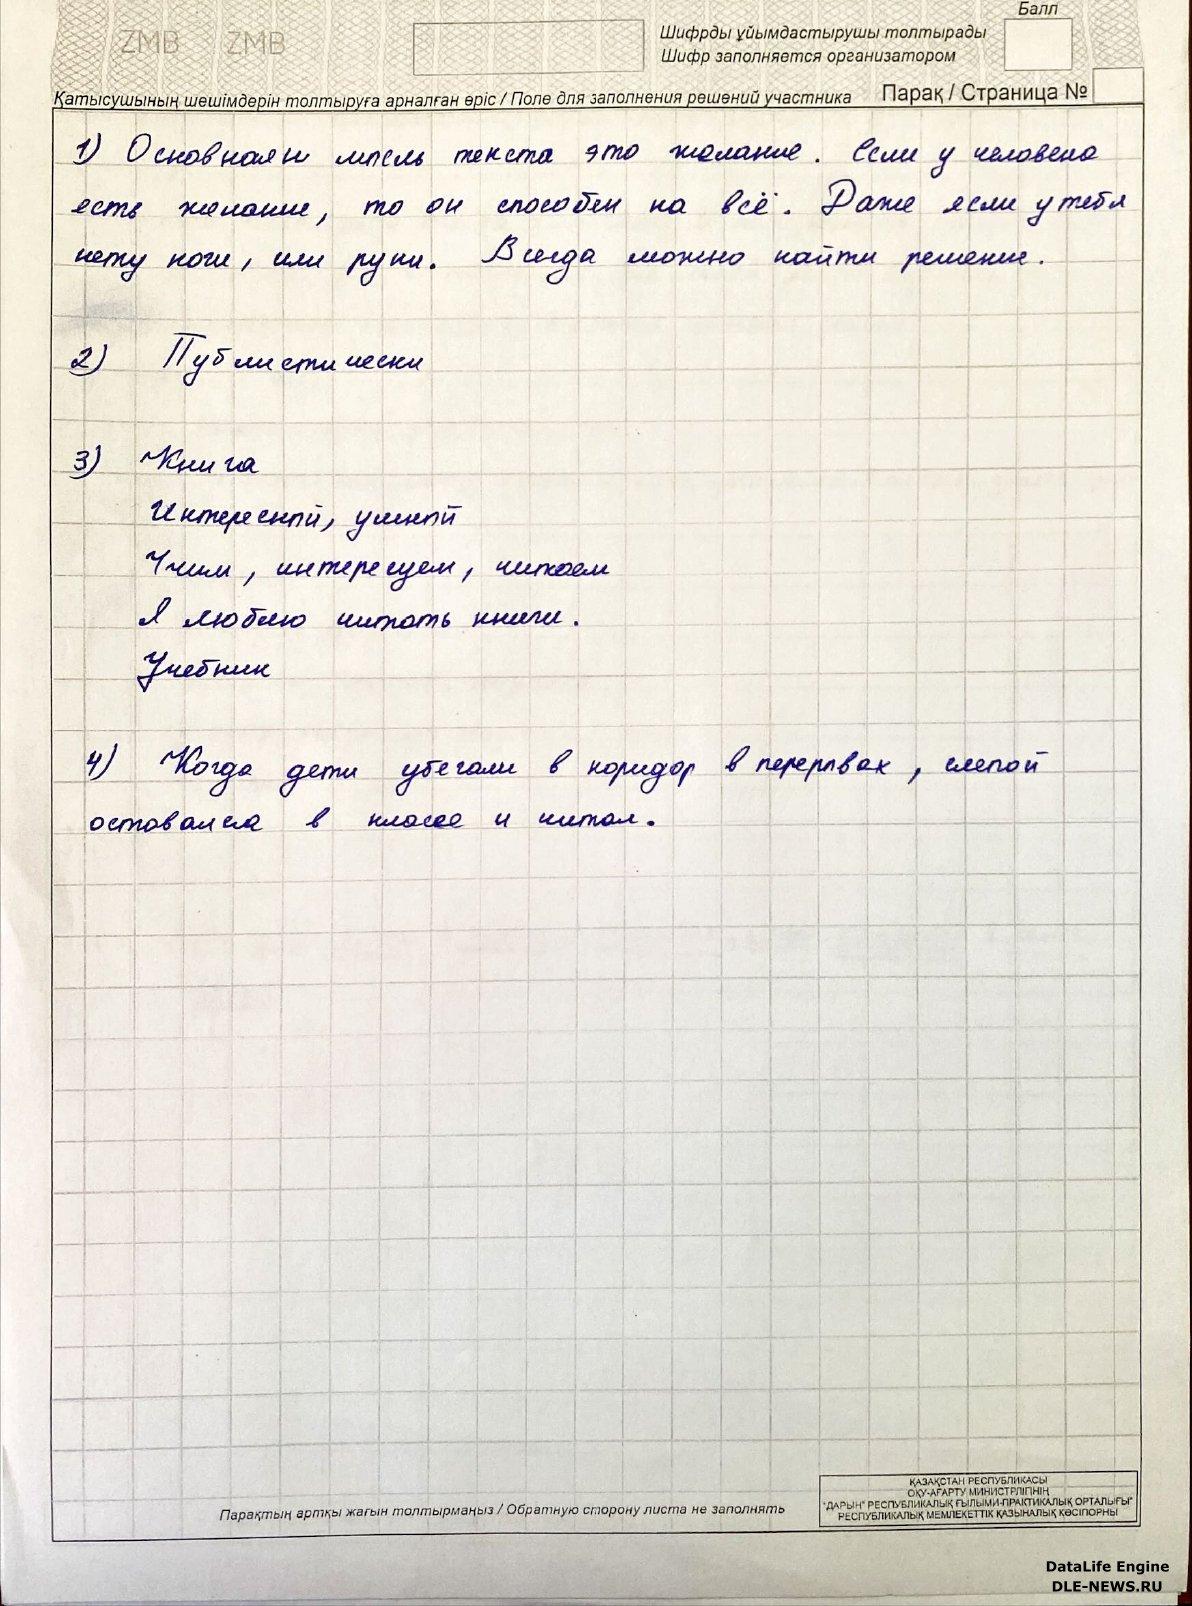 Балл
ZMB ZMB
Шифрды ұйымдастырушы толтырады
Шифр заполняется организатором
Қатысушының шешімдерін толтыруға арналған өріс / Поле для заполнения решений участника Парақ / Страница №
1) Основная мысль текста это желание. Если у человека
есть желание, то он способен на всё. Даже если у тебя
нету ноги, или руки. Всегда можно найти решение.
2) Публистически
3) Книга
Интересный, умный
Учим, интересуем, читаем
Я люблю читать книги.
Учебник
4) Когда дети убегали в коридор в перерывах, слепой
оставался в классе и читал.
Парақтың артқы жағын толтырмаңыз / Обратную сторону листа не заполнять
ҚАЗАҚСТАН РЕСПУБЛИКАСЫ
ОҚУ-АҒАРТУ МИНИСТРЛІГІНІҢ
"ДАРЫН" РЕСПУБЛИКАЛЫҚ ҒЫЛЫМИ-ПРАКТИКАЛЫҚ ОРТАЛЫҒЫ"
РЕСПУБЛИКАЛЫҚ МЕМЛЕКЕТТІК ҚАЗЫНАЛЫҚ КӘСІПОРНЫ
DataLife Engine
DLE-NEWS.RU